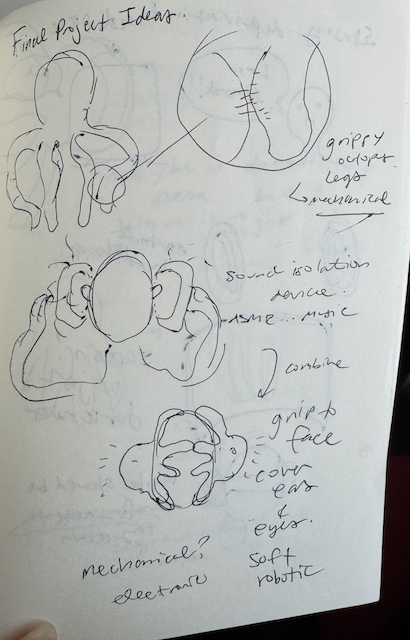 Final Project Ideas.
grippy
octopus
legs
↳ mechanical
sound isolation
device
ASMR... music
combine
grip to
face
cover
ears
+
eyes.
mechanical?
electronic
soft
robotic